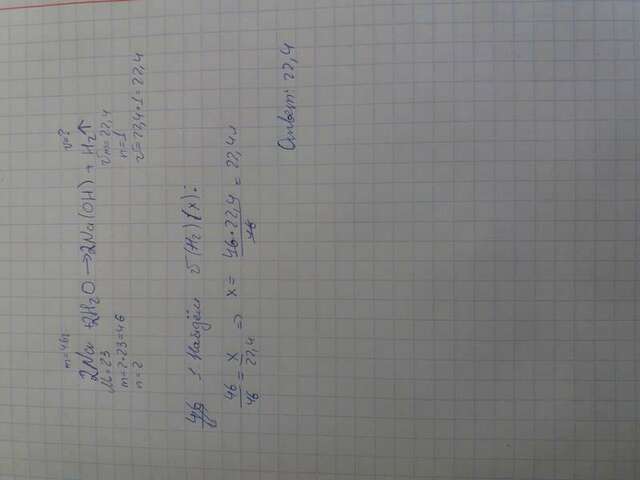 m=46г v=?
2Na + 2H₂O → 2Na(OH) + H₂↑
M=23 Vm=22,4
m=2·23=46 n=1
n=2 V=22,4·1=22,4
1 Найдём V(H₂) (x):
46/46 = x/22,4 ⇒ x = 46·22,4/46 = 22,4л
Ответ: 22,4